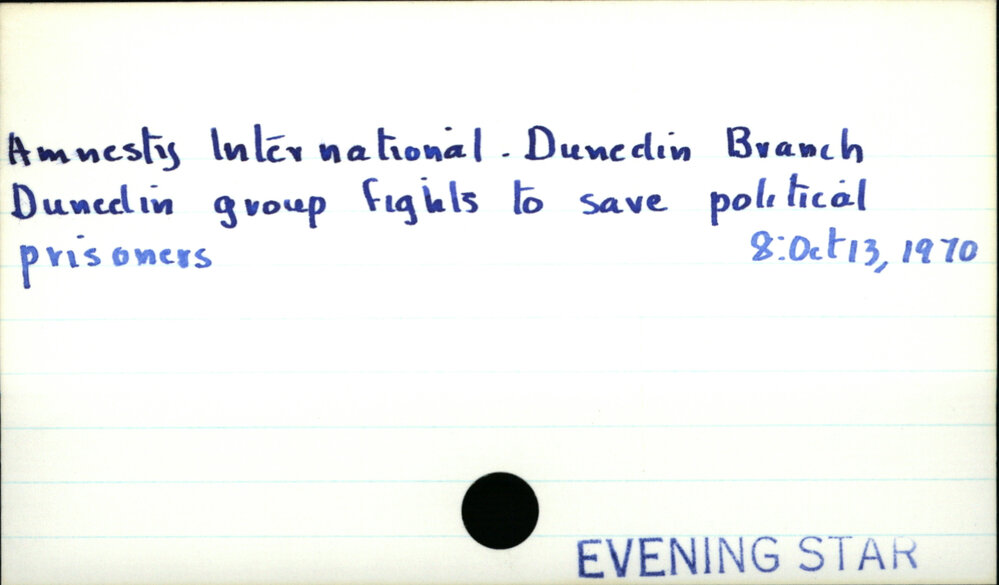 Amnesty International. Dunedin Branch
Dunedin group fights to save political
prisoners 8:Oct 13, 1970
EVENING STAR